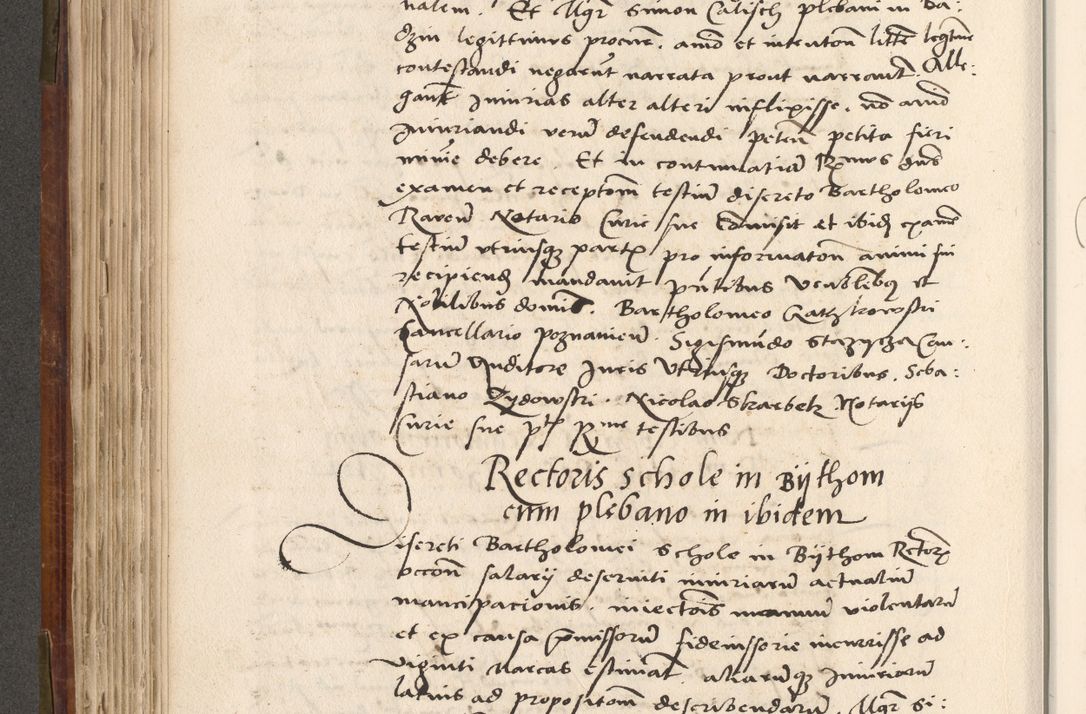 nalem. Et Mgr Simon Calisch plebani in Ba:
dzin legittimus procur. animo et intention litte legitime
contestandi negarunt narrata prout narrant. Alle:
gant Iniurias alter alteri inflixisse. no animo
Iniuriandi verum defendendi petens petita fieri
minime debere. Et in continuatiam Rmus dns
examen et receptom testium discreto Bartholomeo
Notario Curie sue comisit et ibidem examen
testium utriusque partis pro informaton animi sui
recipiend mandavit pntibus Venlibus et
Nobilibus domis. Bartholomeo
Cancellario Poznanien. Sigismundo Can:
sarum Auditore Iuris Utriusque Doctoribus. Seba:
stiano Zydowski. Nicolao Skarbek Notarijs
Curie sue testibus
Rectoris schole in Bijthom
cum plebano in ibidem
Discreti Bartholomei Schole in Bijthom Rectoris
occon salarij deserviti iniuriarum actualium
mancipacionis. iniectois manuum violentarum
et ex causa pmissorum fideiussorie incurrisse ad
viginti marcas estimat aliarumque Iniuriarum
latius ad propositom describendarum. Mgr Si: